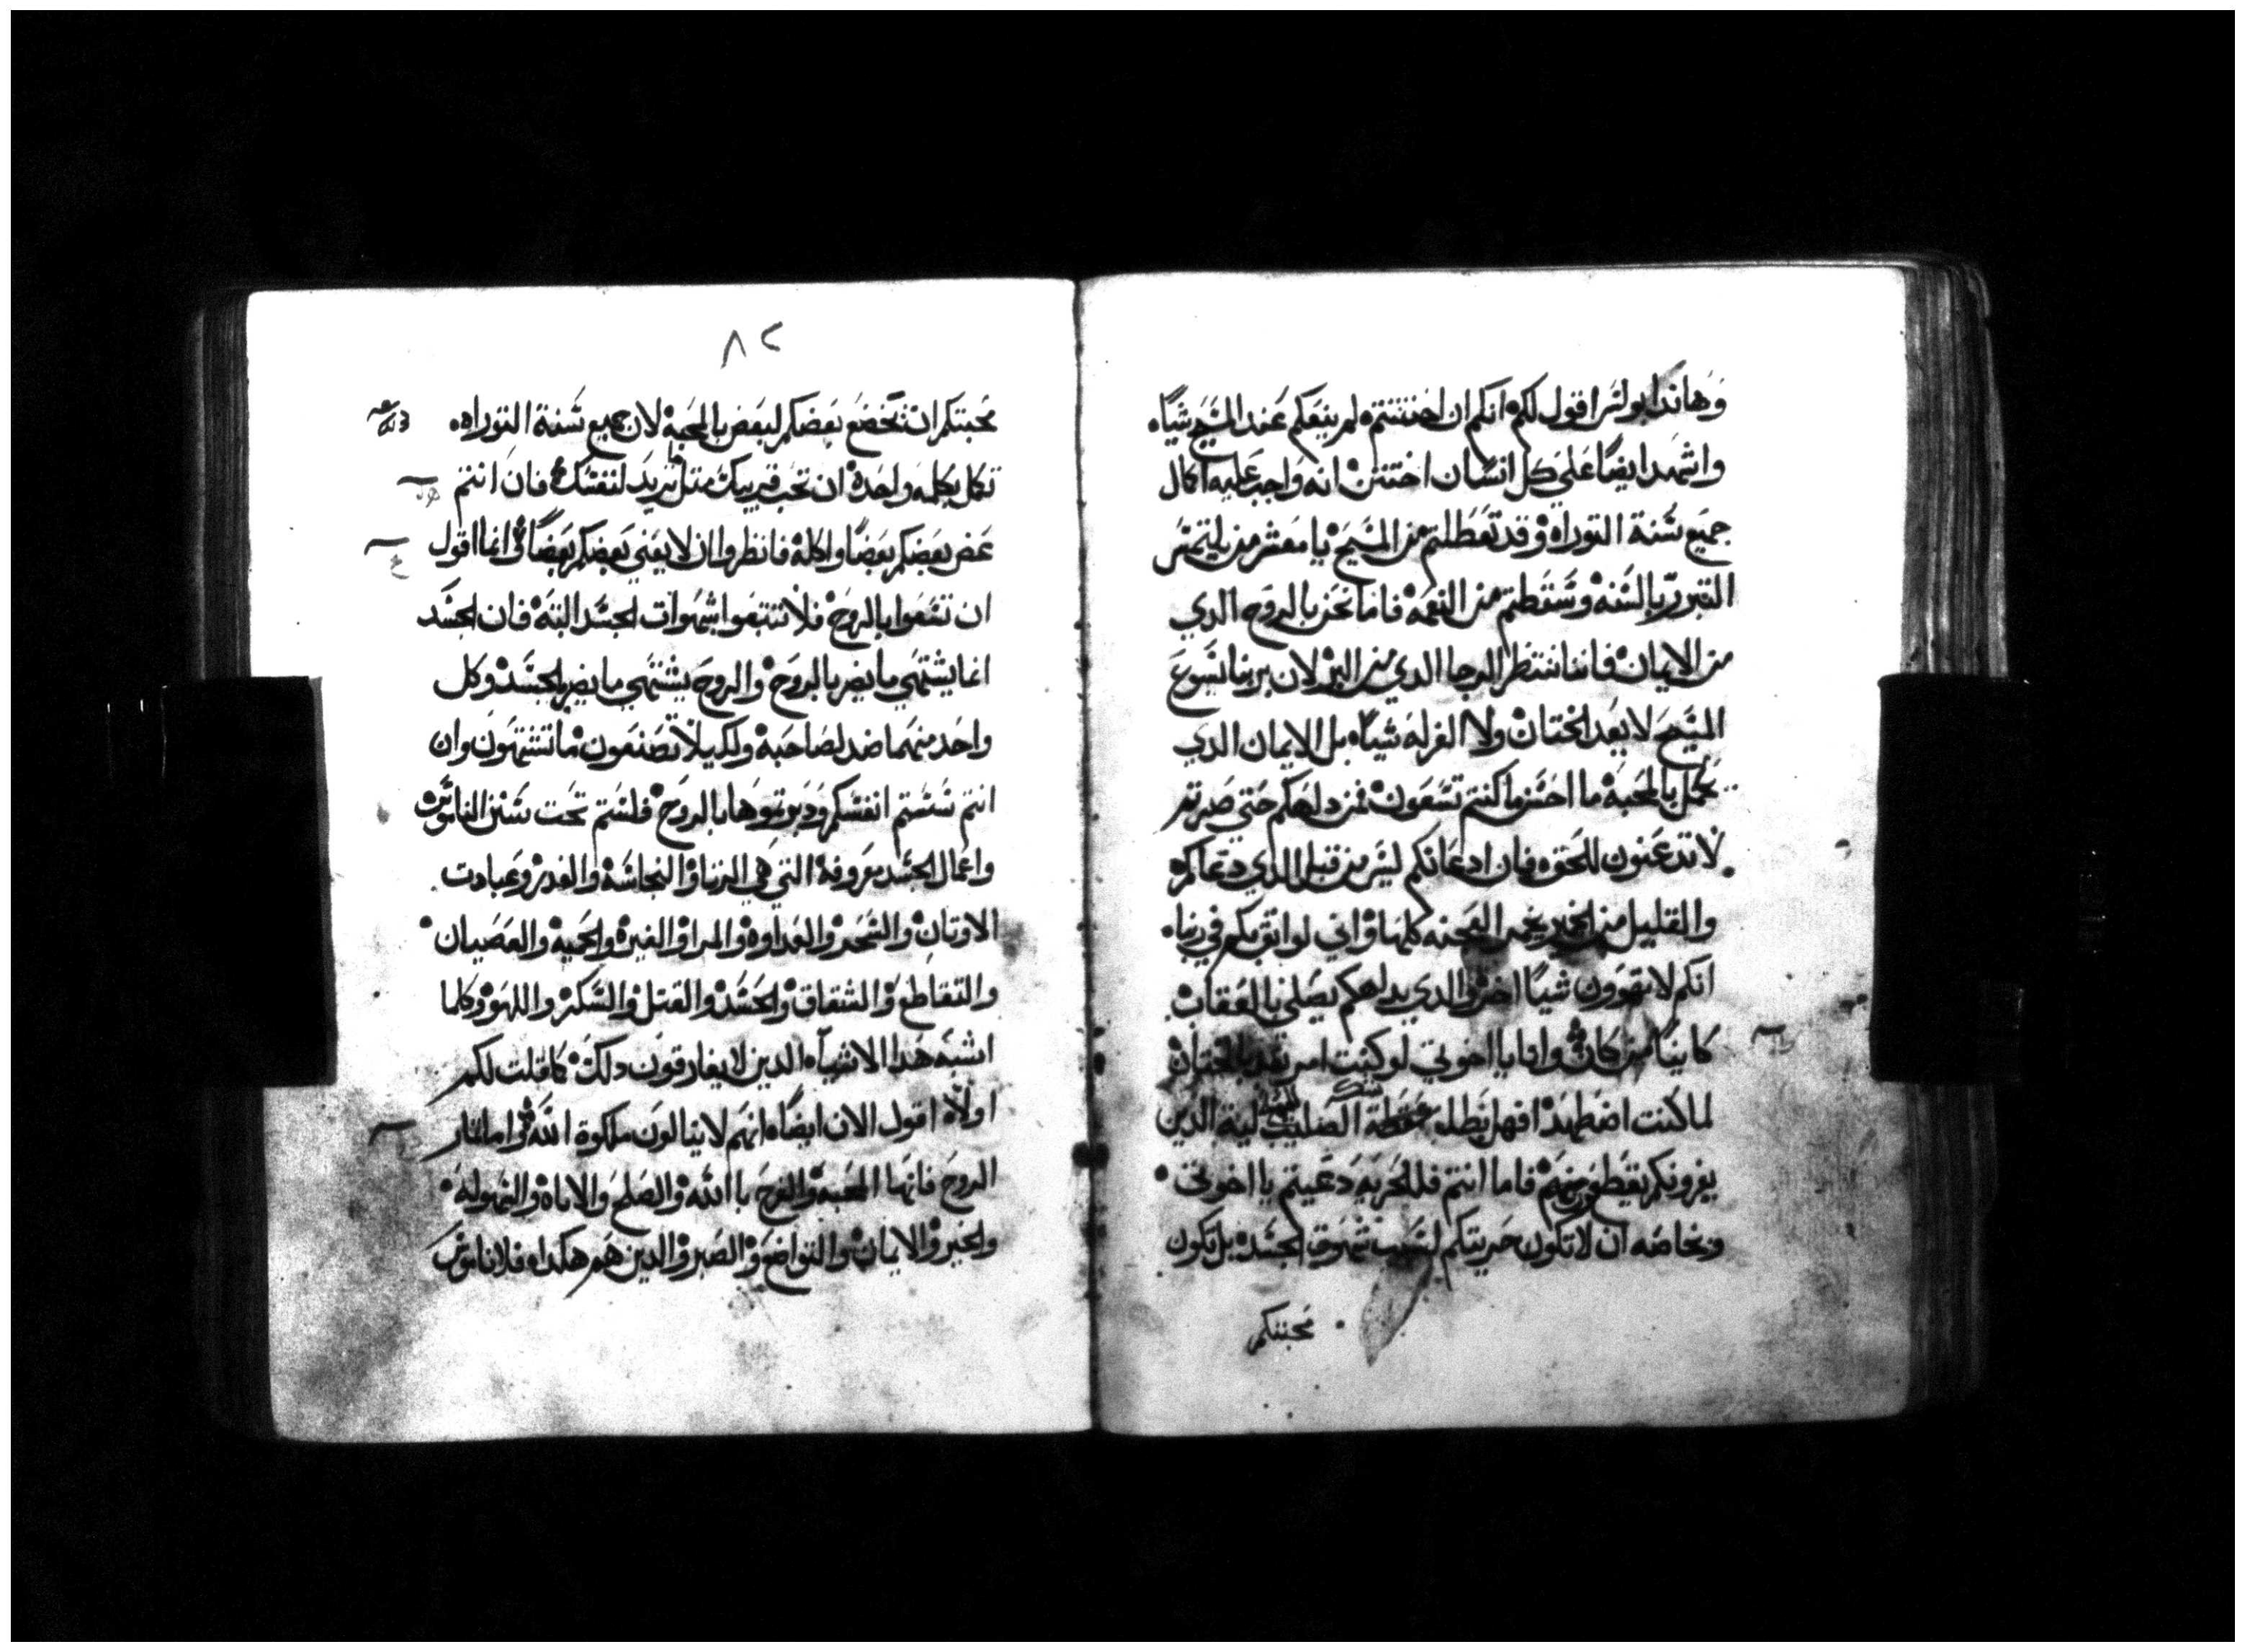 وهاندا بولس اقول لكم انكم ان اختتنتم لم ينفعكم عند المسيح شياه
واشهد ايضا علي كل انسان اختتن انه واجب عليه اكمال
جميع سنة التوراه وقد تعطلتم من المسيح يا معشر من يلتمس
التبرر بالسنه وسقطتم من النعمه فاما نحن بالروح الدي
من الايمان فاننا ننتظر الرجا الدي من البر لان بربنا يسوع
المسيح لا يعد الختان ولا الغرله شياه بل الايمان الدي
يكمل بالمحبه ما احسن ما كنتم تسعون فمن دلهكم حتي صرتم
لا تدعنون للحق فان ادعانكم ليس من قبل الدي دعاكم
والقليل من الخمير يخمر العجنه كلها واني لواثق بكم في ربنا
انكم لا تهوون شيا اخر والدي يدلهكم يصلي بالعقاب
كاينا من كان وانا يا اخوتي لو كنت امر بعد بالختان
لما كنت اضطهد افهل بطلت الصليب ليت الدين
يغرونكم يقطعو منهم فاما انتم فللحريه دعيتم يا اخوتي
وبخاصه ان لا تكون حريتكم لسبب شهوة الجسد بل تكون
محبتكم
٨٢
محبتكم ان يخضع بعضكم لبعض بالمحبه لان جميع سنة التوراه
تكمل بكلمه واحده ان تحب قريبك متل ما تريد لنفسك فان انتم
عض بعضكم بعضا واكله فانظروا ان لا يفني بعضكم بعضا وانما اقول
ان تسعوا بالروح فلا تتبعوا شهوات الجسد البته فان الجسد
انما يشتهي ما يضر بالروح والروح يشتهي ما يضر بالجسد وكل
واحد منهما ضد لصاحبه ولكيلا تصنعون ما تشتهون وان
انتم سستم انفسكم ودبرتموها بالروح فلستم تحت سنن الناموس
واعمال الجسد معروفة التي هي الزنا والنجاسه والغدر وعبادت
الاوتان والسحر والعداوه والمرا والغيره والحميه والعصيان
والتقاطع والشقاق والحسد والقتل والسكر واللهو وكلما
اشبه هدا الاشياء الدين لا يفارقون دلك كما قلت لكم
اولا اقول الان ايضا انهم لا ينالون ملكوة الله واما اتمار
الروح فانها المحبه والفرح با الله والصلح والاناه والسهوله
والخير والايمان والتواضع والصبر والدين هم هكدا فلا ناموس